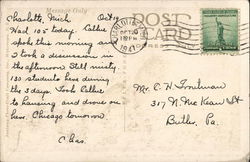 Message Only
POST CARD
Charlotte, Mich. Oct 9
Had 105 today. Collie
spoke this morning and
I took a discussion in
the afternoon. Still ninety.
130 students here during
the 3 days. Took Collie
to Lansing and drove on
here. Chicago tomorrow
Chas.
1941
Mr. C. H. Troutman
317 N. McKean St.
Butler, Pa.